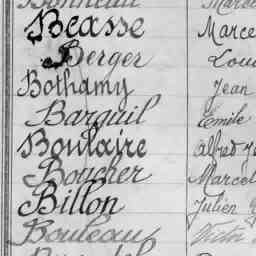 Bonneau Marcel
Beasse Marce
Berger Lou
Bothamy Jean
Barguil Emile
Boulaire Alfred
Boucher Marcel
Billon Julien
Bouleau Victor